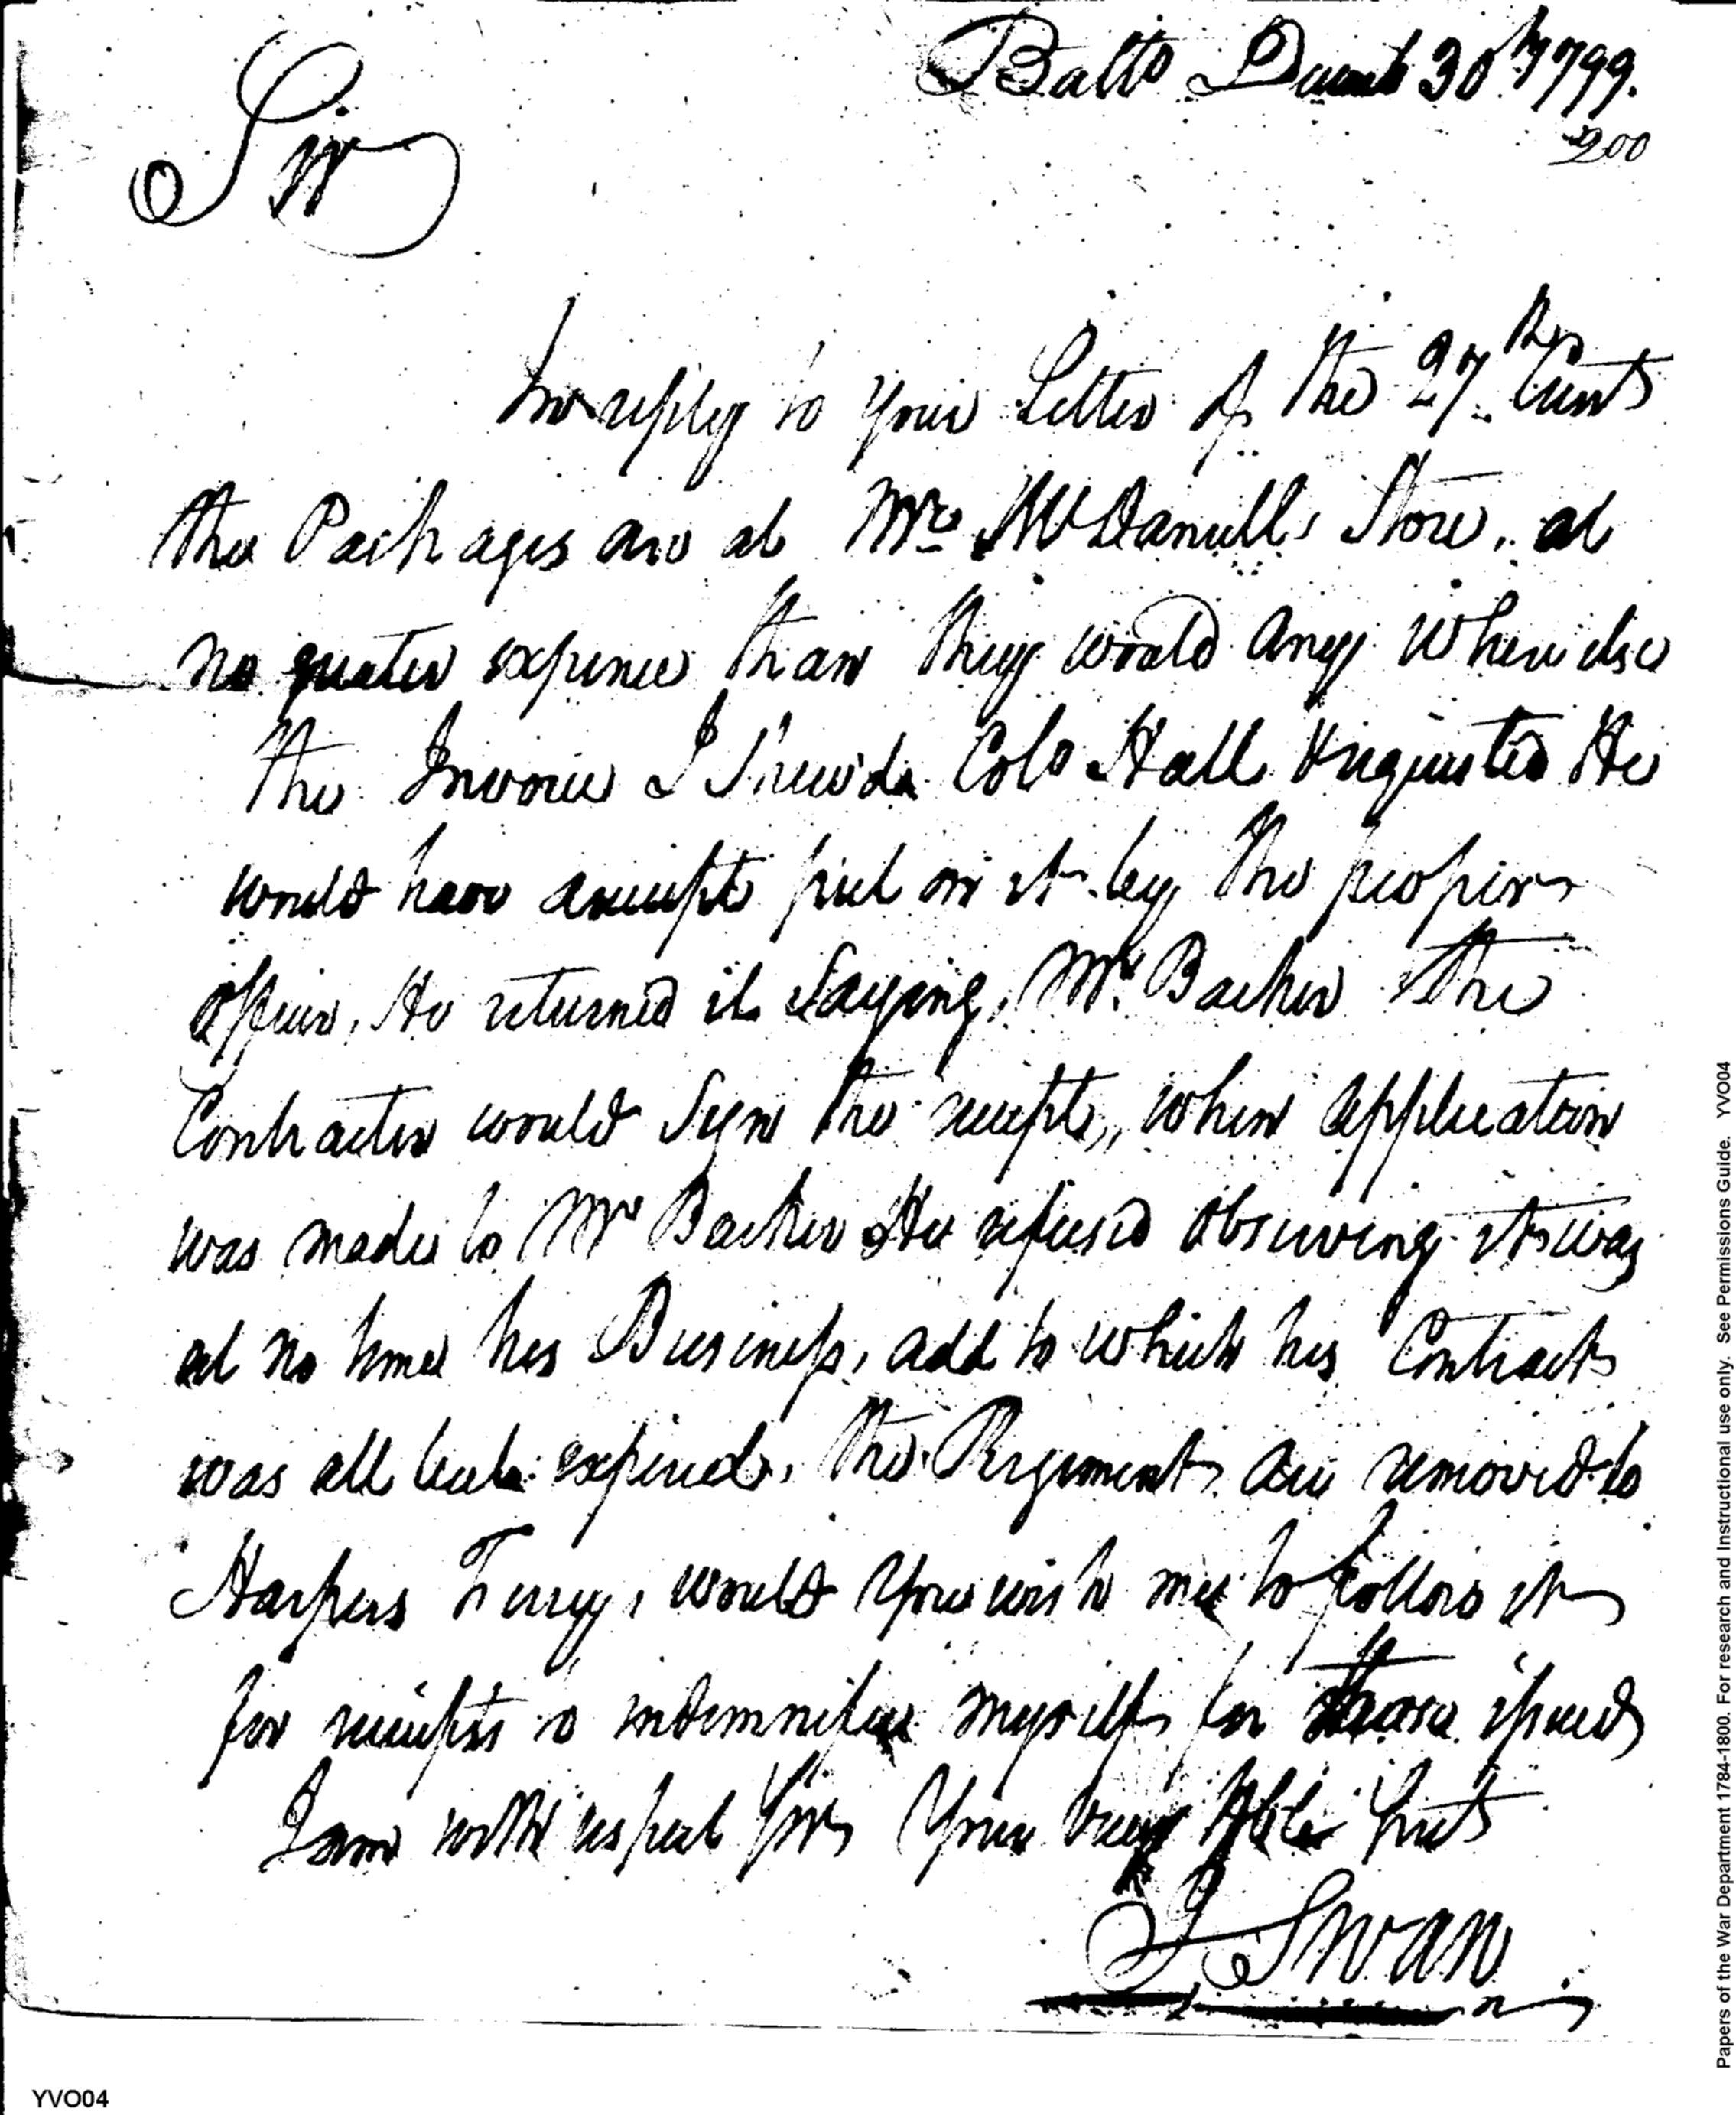 Balto Decemb 30th 1799.
200
Sir
In reply to your Letter of the 27th Curnt
the Packages are at Mr. McDaniells Store, at
no greater expence than they would any where else
the Invoice I Shew'd Colo Hall & requested He
would have a receipt put on it by the proper
officer, He returned it Saying, Mr. Backer the
Contractor would Sign the receipts, when application
was made to Mr Backer He refused observing it was
at no time his Business, add to which his Contract
was all but expired, the Regiment are removed to
Harpers Ferry, would you wish me to follow it
for receipts to indemnifye myself for those issued
I am with respect Sir, Your very Hble Srvt
J Swan
YVO04
Papers of the War Department 1784-1800. For research and instructional use only. See Permissions Guide. YVO04